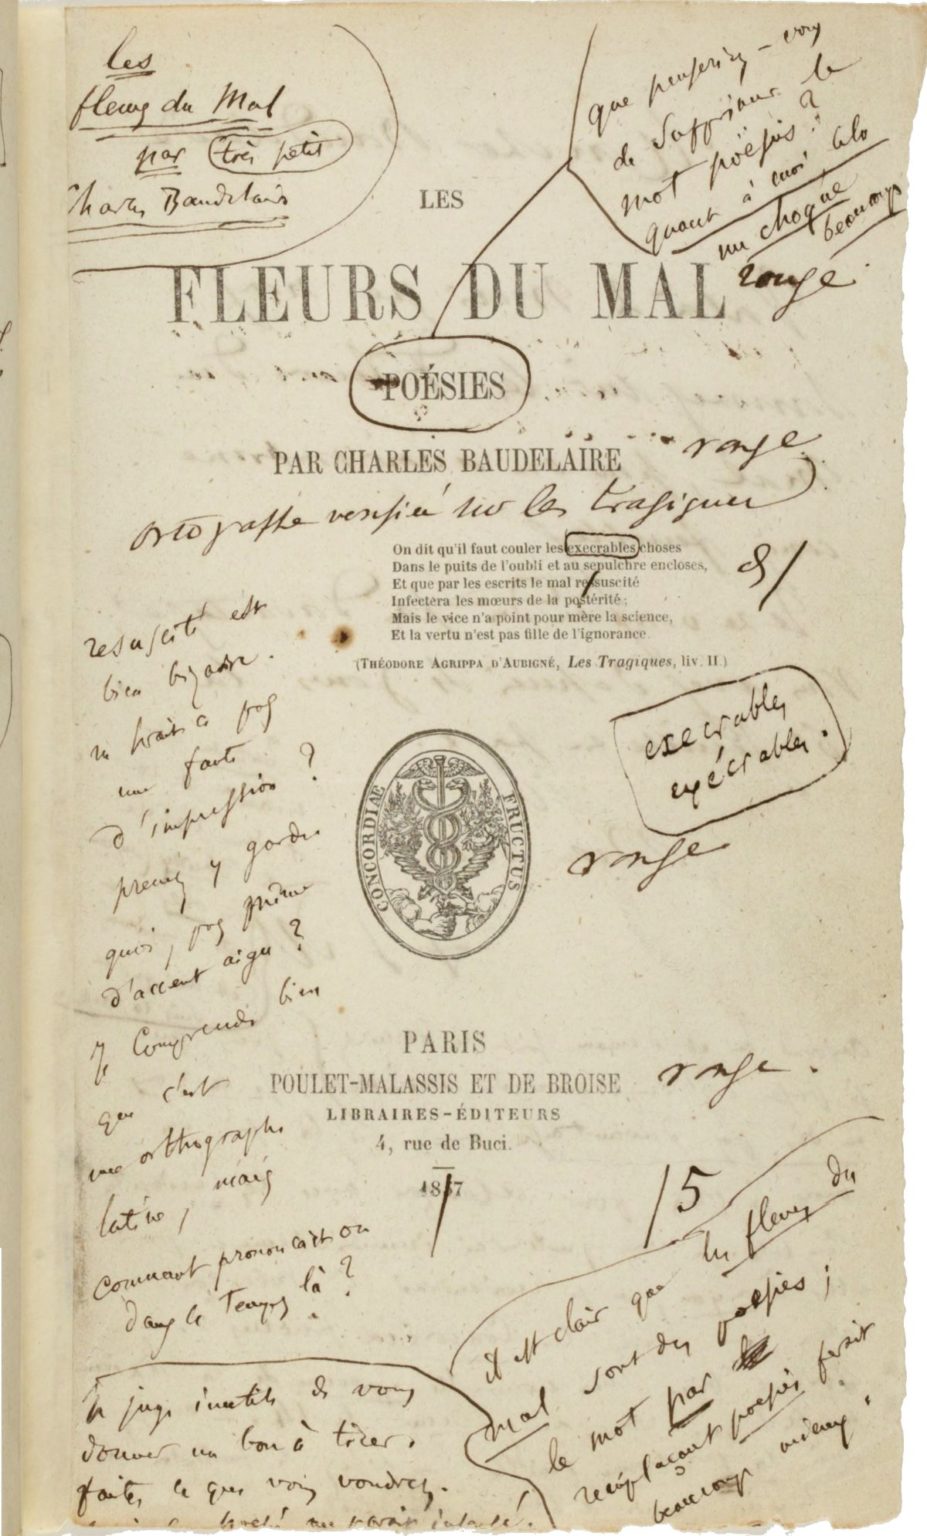 les
fleurs du Mal
par très petit
Charles Baudelaire
que penseriez-vous
de supprimer le
mot poësies ?
quant à moi cela
me choque
beaucoup
LES
FLEURS DU MAL
rouge
POÉSIES
PAR CHARLES BAUDELAIRE
rouge
ortografe vérifiée sur les tragiques
On dit qu'il faut couler les execrables choses
Dans le puits de l'oubli et au sepulchre encloses,
Et que par les escrits le mal resuscité
Infectera les mœurs de la postérité ;
Mais le vice n'a point pour mère la science,
Et la vertu n'est pas fille de l'ignorance
(THÉODORE AGRIPPA D'AUBIGNÉ, Les Tragiques, liv. II.)
resuscité est
bien bizarre.
ne serait-ce pas
une faute
d'impression ?
prenez y garde
quoi, pas même
d'accent aigu ?
Je comprends bien
que c'est
une orthographe
latine, mais
comment prononcait-on
dans ce temps là ?
execrables
exécrables.
rouge
CONCORDIAE FRUCTUS
PARIS
POULET-MALASSIS ET DE BROISE
rouge.
LIBRAIRES-ÉDITEURS
4, rue de Buci.
1857
/5
il est clair que les fleurs du
mal sont des poesies ;
le mot par
remplaçant poesies ferait
beaucoup mieux.
Je juge inutile de vous
donner un bon à tirer.
faites ce que vous voudrez.